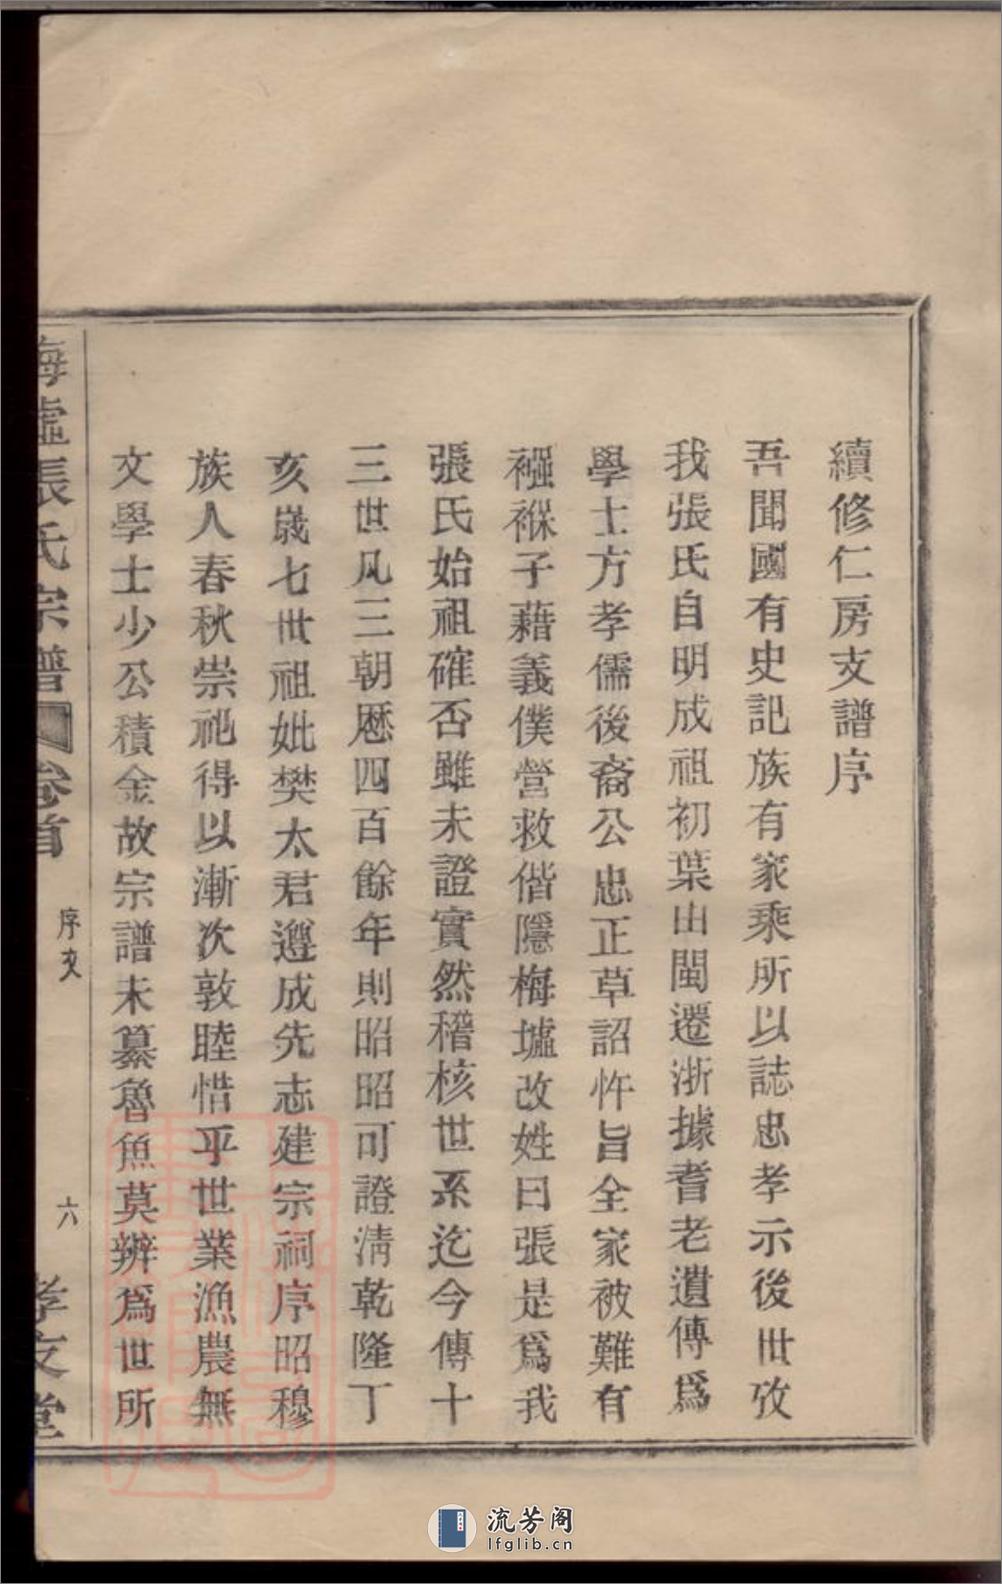 續修仁房支譜序
吾聞國有史記族有家乘所以誌忠孝示後世攷
我張氏自明成祖初葉由閩遷浙據耆老遺傳爲
學士方孝儒後裔公忠正草詔忤旨全家被難有
襁褓子藉義僕營救偕隱梅墟改姓曰張是爲我
張氏始祖確否雖未證實然稽核世系迄今傳十
三世凡三朝歷四百餘年則昭昭可證清乾隆丁
亥歲七世祖妣樊太君遵成先志建宗祠序昭穆
族人春秋崇祀得以漸次敦睦惜乎世業漁農無
文學士少公積金故宗譜未纂魯魚莫辨爲世所
梅墟張氏宗譜 卷首 序文 六 孝友堂
流芳阁
lfglib.cn